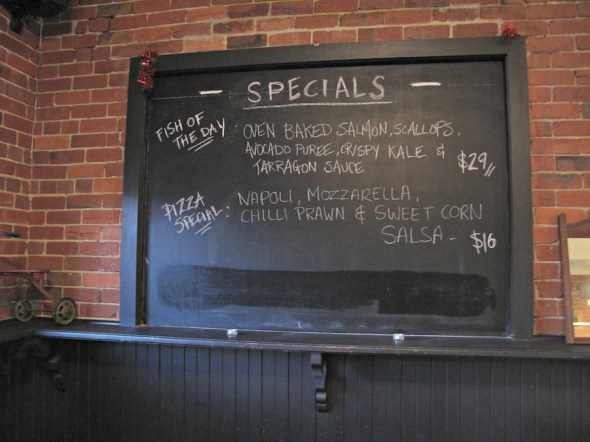 - SPECIALS -
FISH OF THE DAY : OVEN BAKED SALMON, SCALLOPS,
AVOCADO PUREE, CRISPY KALE &
TARRAGON SAUCE $29
PIZZA SPECIAL : NAPOLI, MOZZARELLA,
CHILLI PRAWN & SWEET CORN
SALSA - $16